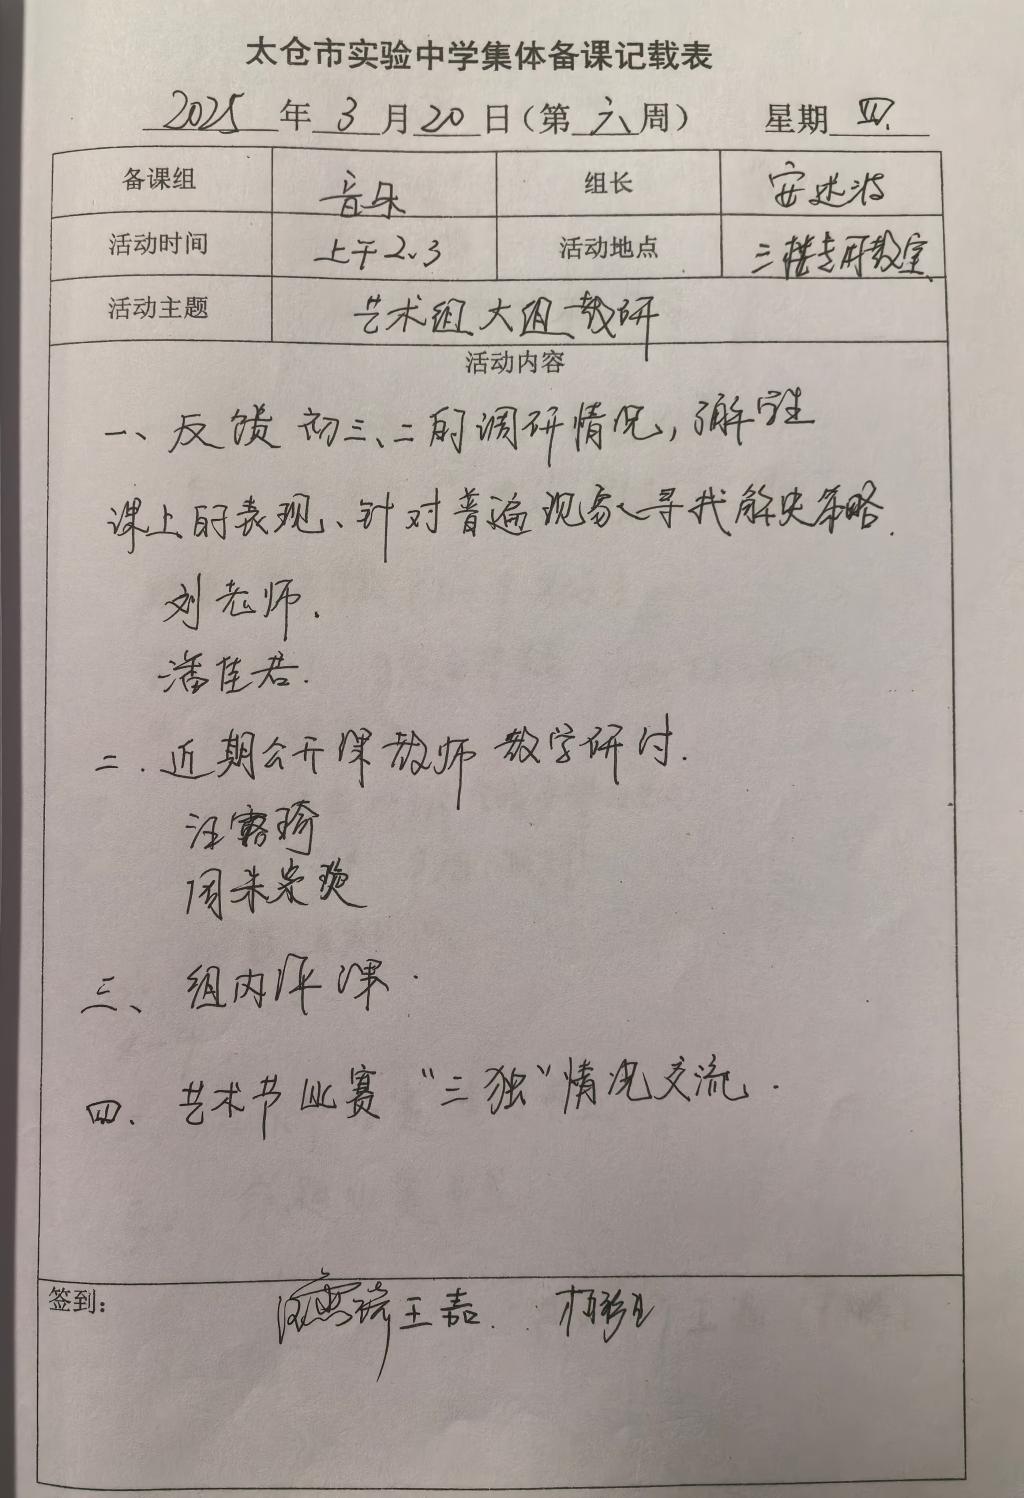 太仓市实验中学集体备课记载表
2025年3月20日(第六周) 星期四.
备课组 音乐 组长 安述波
活动时间 上午2、3 活动地点 三楼专用教室
活动主题 艺术组大组教研
活动内容
一、反馈初三、二的调研情况,了解学生
课上的表现、针对普遍现象、寻找解决策略.
刘老师.
潘佳君.
二.近期公开课教师教学研讨.
汪露琦
周朱
三、组内评课.
四.艺术节比赛“三独”情况交流.
签到: 王嘉.